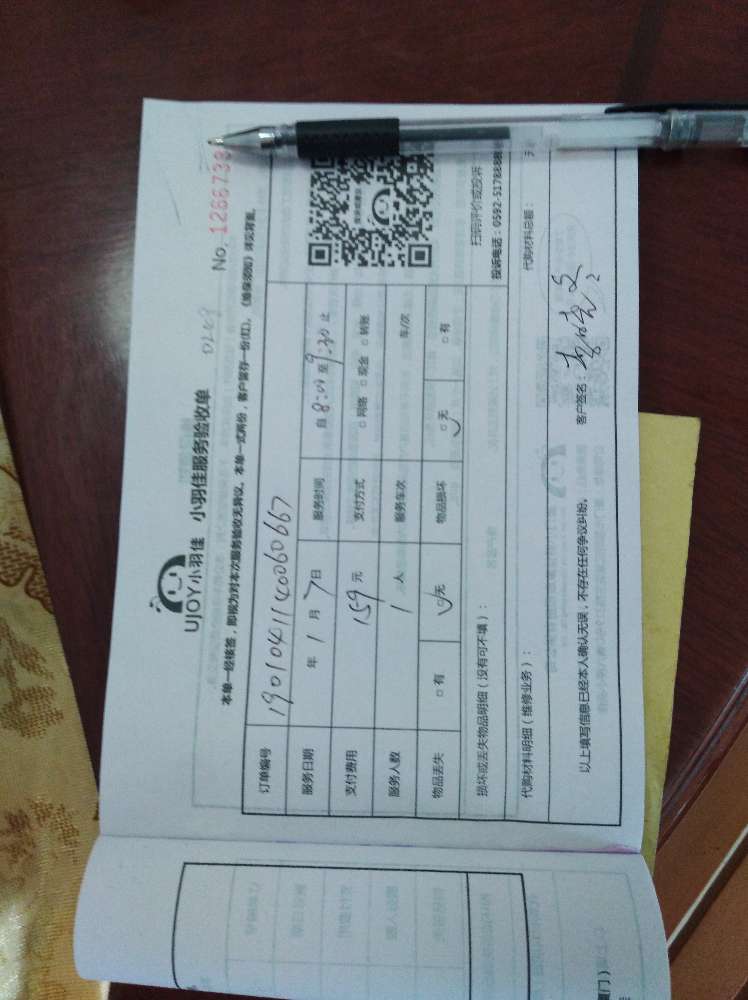 UJOY小羽佳 小羽佳服务验收单
No. 1266738
本单一经核签，即视为对本次服务验收无异议。本单一式两份，客户留存一份(红)。《维保须知》详见背面。
订单编号 19010411140060667
服务日期 年 1 月 7 日 服务时间 自 8:00 至 9:30 止
支付费用 159 元 支付方式 □ 网络 □ 现金 □ 转账
服务人数 1 人 服务车次 车/次
物品丢失 □ 有 □ 无 物品损坏 □ 无 □ 有
扫码评价或投诉
投诉电话：0592-5178888
损坏或丢失物品明细（没有可不填）：
代购材料明细（维修业务）： 代购材料总额：
以上填写信息已经本人确认无误，不存在任何争议纠纷。 客户签名：